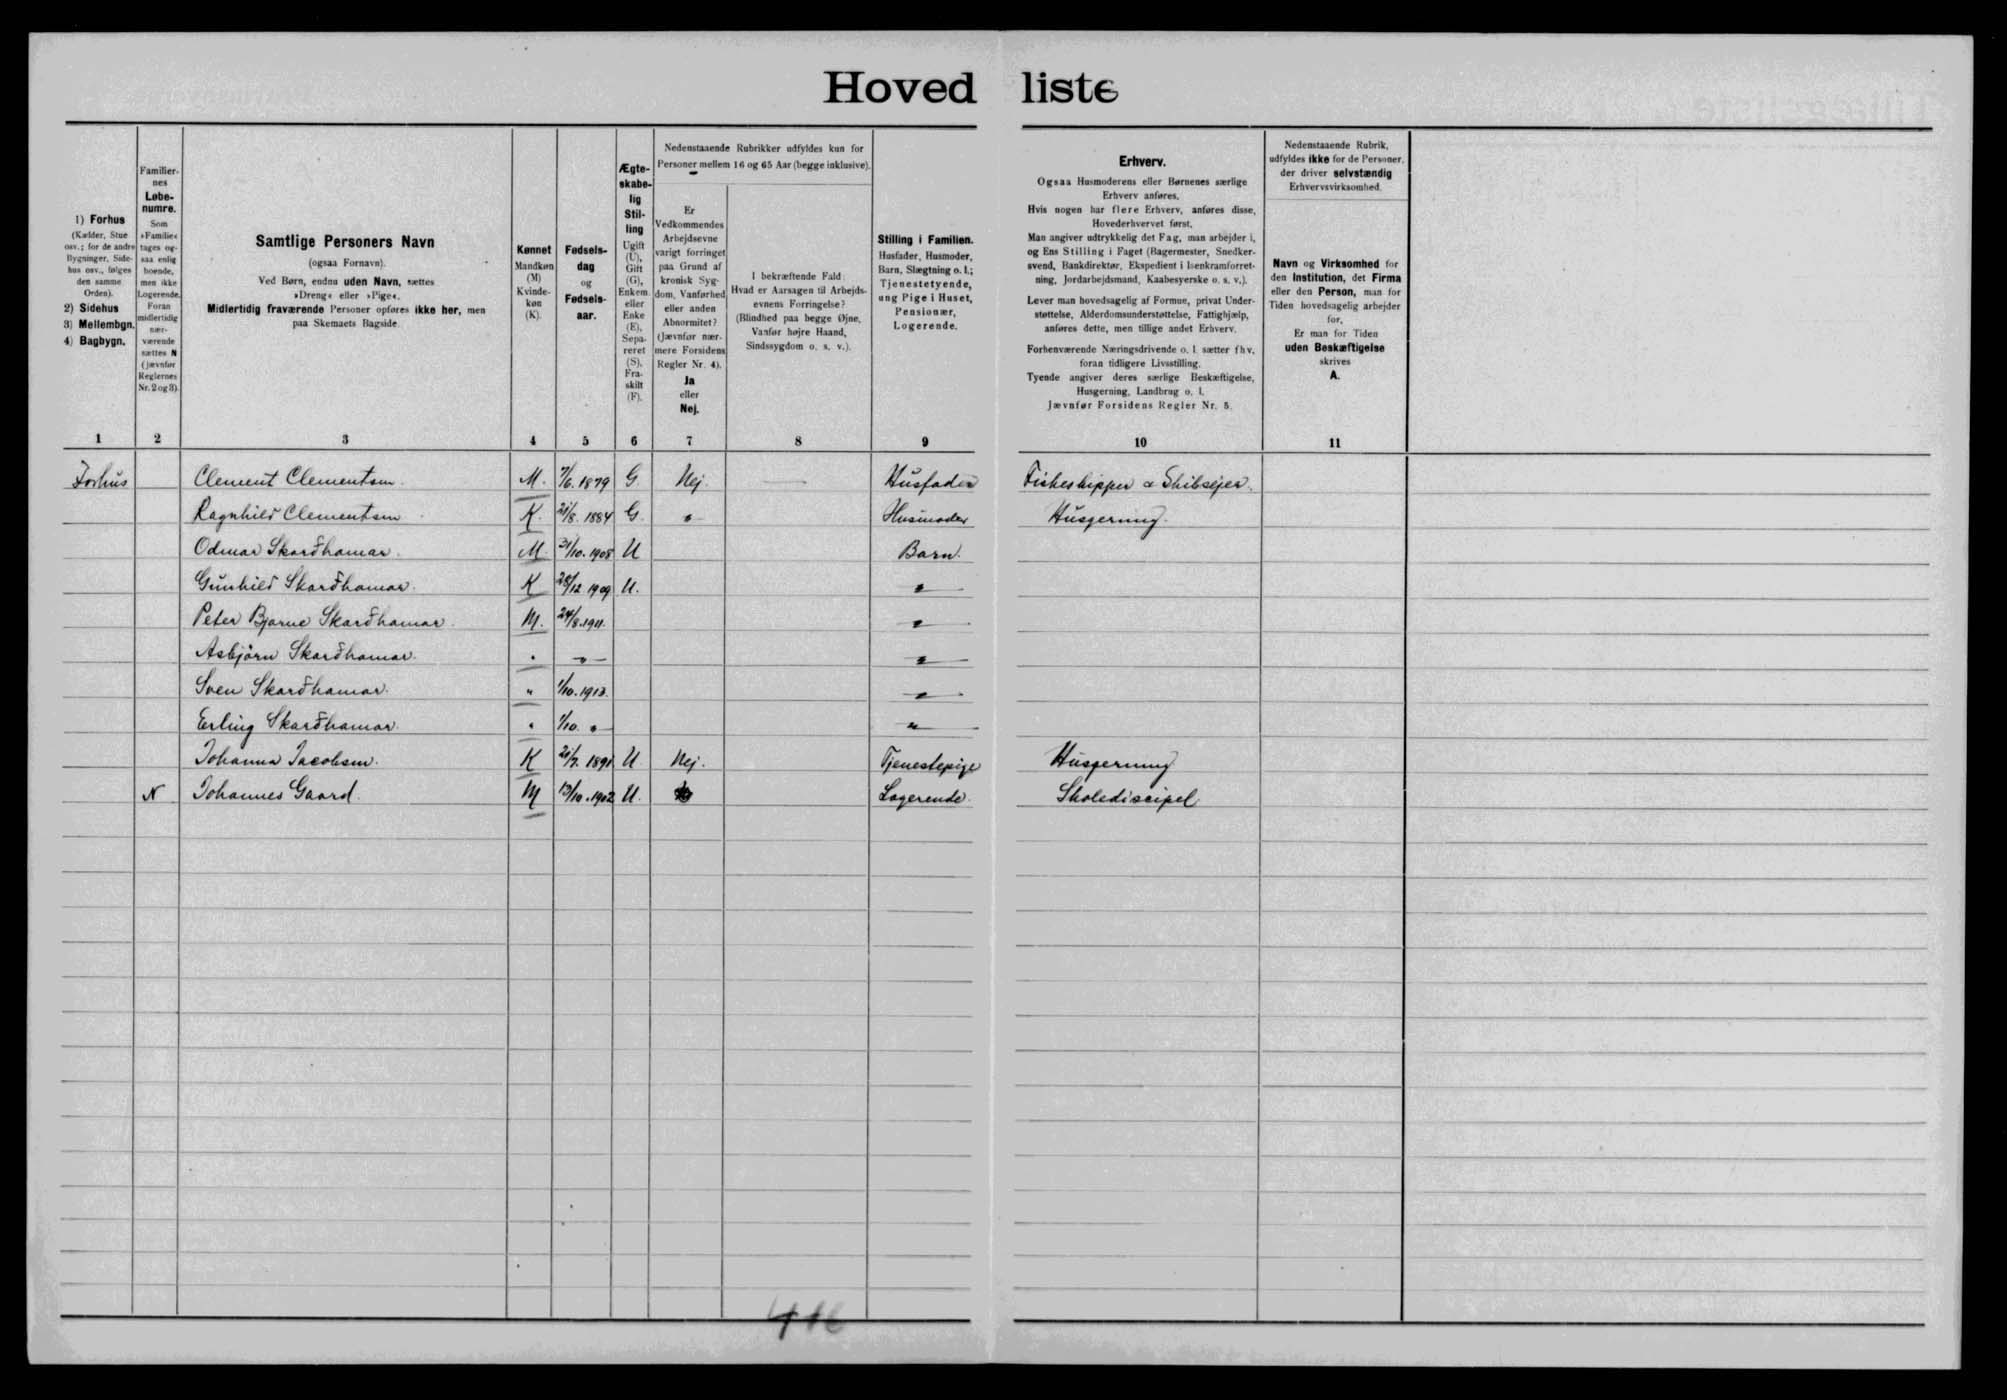 Hovedliste
1) Forhus
(Kælder, Stue
osv.; for de andre
Bygninger, Side-
hus osv., følges
den samme
Orden).
2) Sidehus
3) Mellembgn.
4) Bagbygn.
Familier-
nes
Løbe-
numre.
Som
»Familie«
tages og-
saa enlig
boende,
men ikke
Logerende.
Foran
midlertidig
nær-
værende
sættes N
(jævnfør
Reglernes
Nr. 2 og 3).
Samtlige Personers Navn
(ogsaa Fornavn).
Ved Børn, endnu uden Navn, sættes
»Dreng« eller »Pige«.
Midlertidig fraværende Personer opføres ikke her, men
paa Skemaets Bagside.
Kønnet
Mandkøn
(M)
Kvinde-
køn
(K).
Fødsels-
dag
og
Fødsels-
aar.
Ægte-
skabe-
lig
Stil-
ling
Ugift
(U),
Gift
(G),
Enkem.
eller
Enke
(E),
Sepa-
reret
(S),
Fra-
skilt
(F).
Nedenstaaende Rubrikker udfyldes kun for
Personer mellem 16 og 65 Aar (begge inklusive).
Er
Vedkommendes
Arbejdsevne
varigt forringet
paa Grund af
kronisk Syg-
dom, Vanførhed
eller anden
Abnormitet?
(Jævnfør nær-
mere Forsidens
Regler Nr. 4).
Ja
eller
Nej.
I bekræftende Fald:
Hvad er Aarsagen til Arbejds-
evnens Forringelse?
(Blindhed paa begge Øjne,
Vanfør højre Haand,
Sindssygdom o. s. v.).
Stilling i Familien.
Husfader, Husmoder,
Barn, Slægtning o. l.;
Tjenestetyende,
ung Pige i Huset,
Pensionær,
Logerende.
Erhverv.
Ogsaa Husmoderens eller Børnenes særlige
Erhverv anføres.
Hvis nogen har flere Erhverv, anføres disse,
Hovederhvervet først.
Man angiver udtrykkelig det Fag, man arbejder i,
og Ens Stilling i Faget (Bagermester, Snedker-
svend, Bankdirektør, Ekspedient i Isenkramforret-
ning, Jordarbejdsmand, Kaabesyerske o. s. v.).
Lever man hovedsagelig af Formue, privat Under-
støttelse, Alderdomsunderstøttelse, Fattighjælp,
anføres dette, men tillige andet Erhverv.
Forhenværende Næringsdrivende o. l. sætter fhv.
foran tidligere Livsstilling.
Tyende angiver deres særlige Beskæftigelse,
Husgerning, Landbrug o. l.
Jævnfør Forsidens Regler Nr. 5.
Nedenstaaende Rubrik,
udfyldes ikke for de Personer,
der driver selvstændig
Erhvervsvirksomhed.
Navn og Virksomhed for
den Institution, det Firma
eller den Person, man for
Tiden hovedsagelig arbejder
for.
Er man for Tiden
uden Beskæftigelse
skrives
A.
1 2 3 4 5 6 7 8 9 10 11
Forhus Clement Clementsen. M. 7/6. 1879 G Nej. — Husfader Fiskeskipper & Skibsejer.
Ragnhild Clementsen K. 21/8. 1884 G. " Husmoder Husgerning.
Odmar Skardhamar. M. 31/10. 1908 U Barn.
Gunhild Skardhamar. K 28/12 1909 U. "
Peter Bjarne Skardhamar. M. 24/8. 1911. "
Asbjörn Skardhamar. " " "
Sven Skardhamar. " 1/10. 1913. "
Erling Skardhamar. " 1/10. " "
Johanna Jacobsen. K 21/7. 1891 U Nej. Tjenestepige Husgerning
N Johannes Gaard. M 13/10. 1902 U. Logerende. Skolediscipel